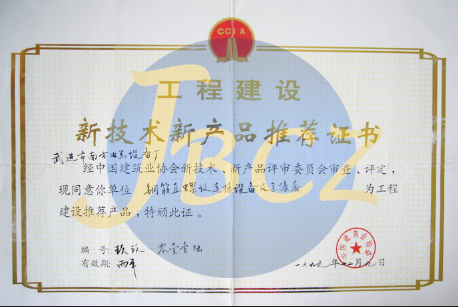 CCIA
工程建设
新技术新产品推荐证书
武进市南方电器设备厂
经中国建筑业协会新技术、新产品评审委员会审查、评定，
现同意你单位 钢筋直螺纹连接设备及连接套 为工程
建设推荐产品，特颁此证。
编号：玖玖
有效期：两年
一九九九年十二月九日
JBCZ